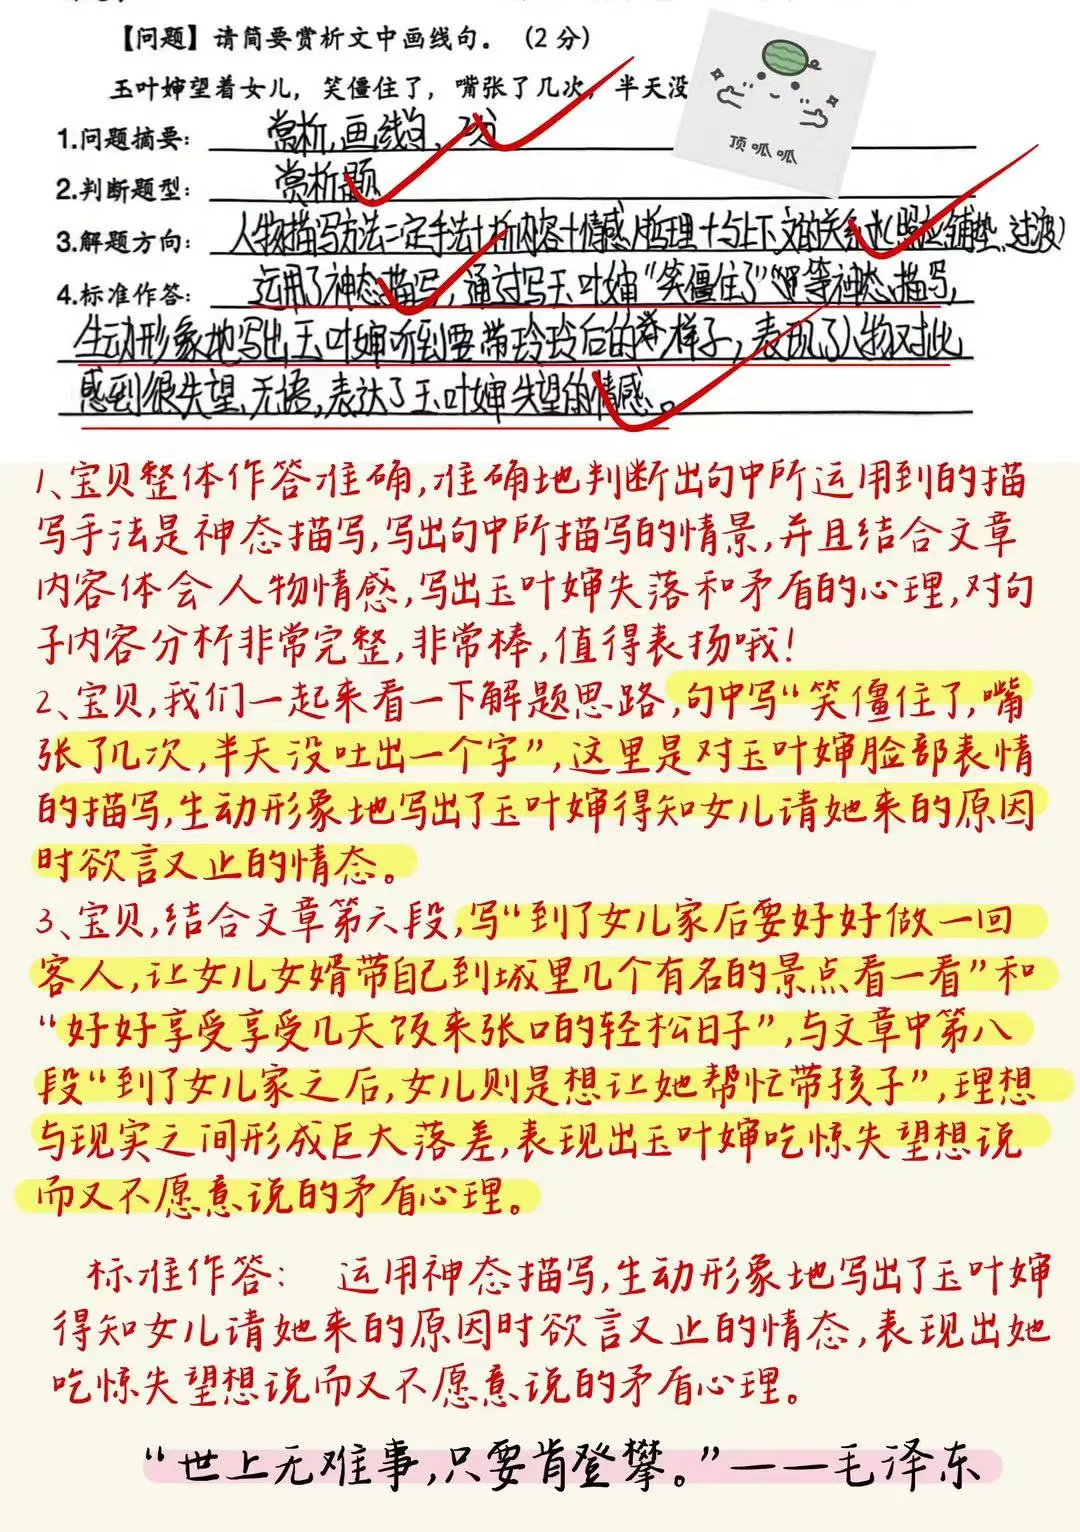 【问题】请简要赏析文中画线句。（2分）
玉叶婶望着女儿，笑僵住了，嘴张了几次，半天没
顶呱呱
1.问题摘要：赏析，画线句，2分
2.判断题型：赏析题
3.解题方向：人物描写方法=定手法+析内容+情感/哲理+与上下文的关系(照应、铺垫、过渡)
4.标准作答：运用了神态描写，通过写玉叶婶“笑僵住了”等神态描写，
生动形象地写出玉叶婶听到要带玲玲后的样子，表现了人物对此
感到很失望、无语，表达了玉叶婶失望的情感。
1、宝贝整体作答准确，准确地判断出句中所运用到的描
写手法是神态描写，写出句中所描写的情景，并且结合文章
内容体会人物情感，写出玉叶婶失落和矛盾的心理，对句
子内容分析非常完整，非常棒，值得表扬哦！
2、宝贝，我们一起来看一下解题思路，句中写“笑僵住了，嘴
张了几次，半天没吐出一个字”，这里是对玉叶婶脸部表情
的描写，生动形象地写出了玉叶婶得知女儿请她来的原因
时欲言又止的情态。
3、宝贝，结合文章第六段，写“到了女儿家后要好好做一回
客人，让女儿女婿带自己到城里几个有名的景点看一看”和
“好好享受享受几天饭来张口的轻松日子”，与文章中第八
段“到了女儿家之后，女儿则是想让她帮忙带孩子”，理想
与现实之间形成巨大落差，表现出玉叶婶吃惊失望想说
而又不愿意说的矛盾心理。
标准作答：运用神态描写，生动形象地写出了玉叶婶
得知女儿请她来的原因时欲言又止的情态，表现出她
吃惊失望想说而又不愿意说的矛盾心理。
“世上无难事，只要肯登攀。”———毛泽东